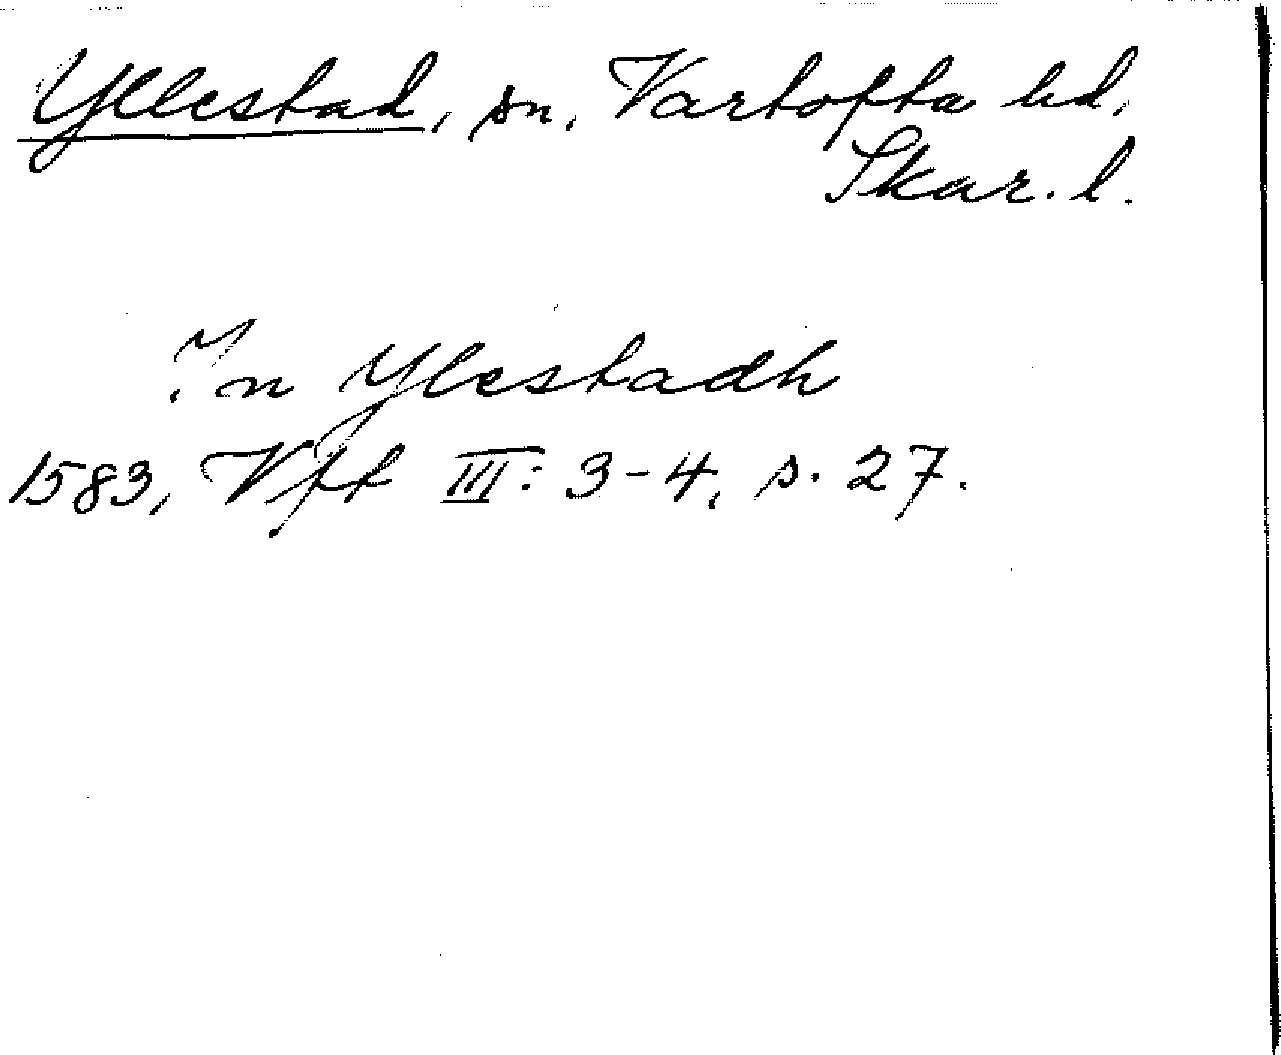 Yllestad, sn, Vartofta hd,
Skar. l.
In Ylestadh
1583, Vfft III: 3-4, s. 27.